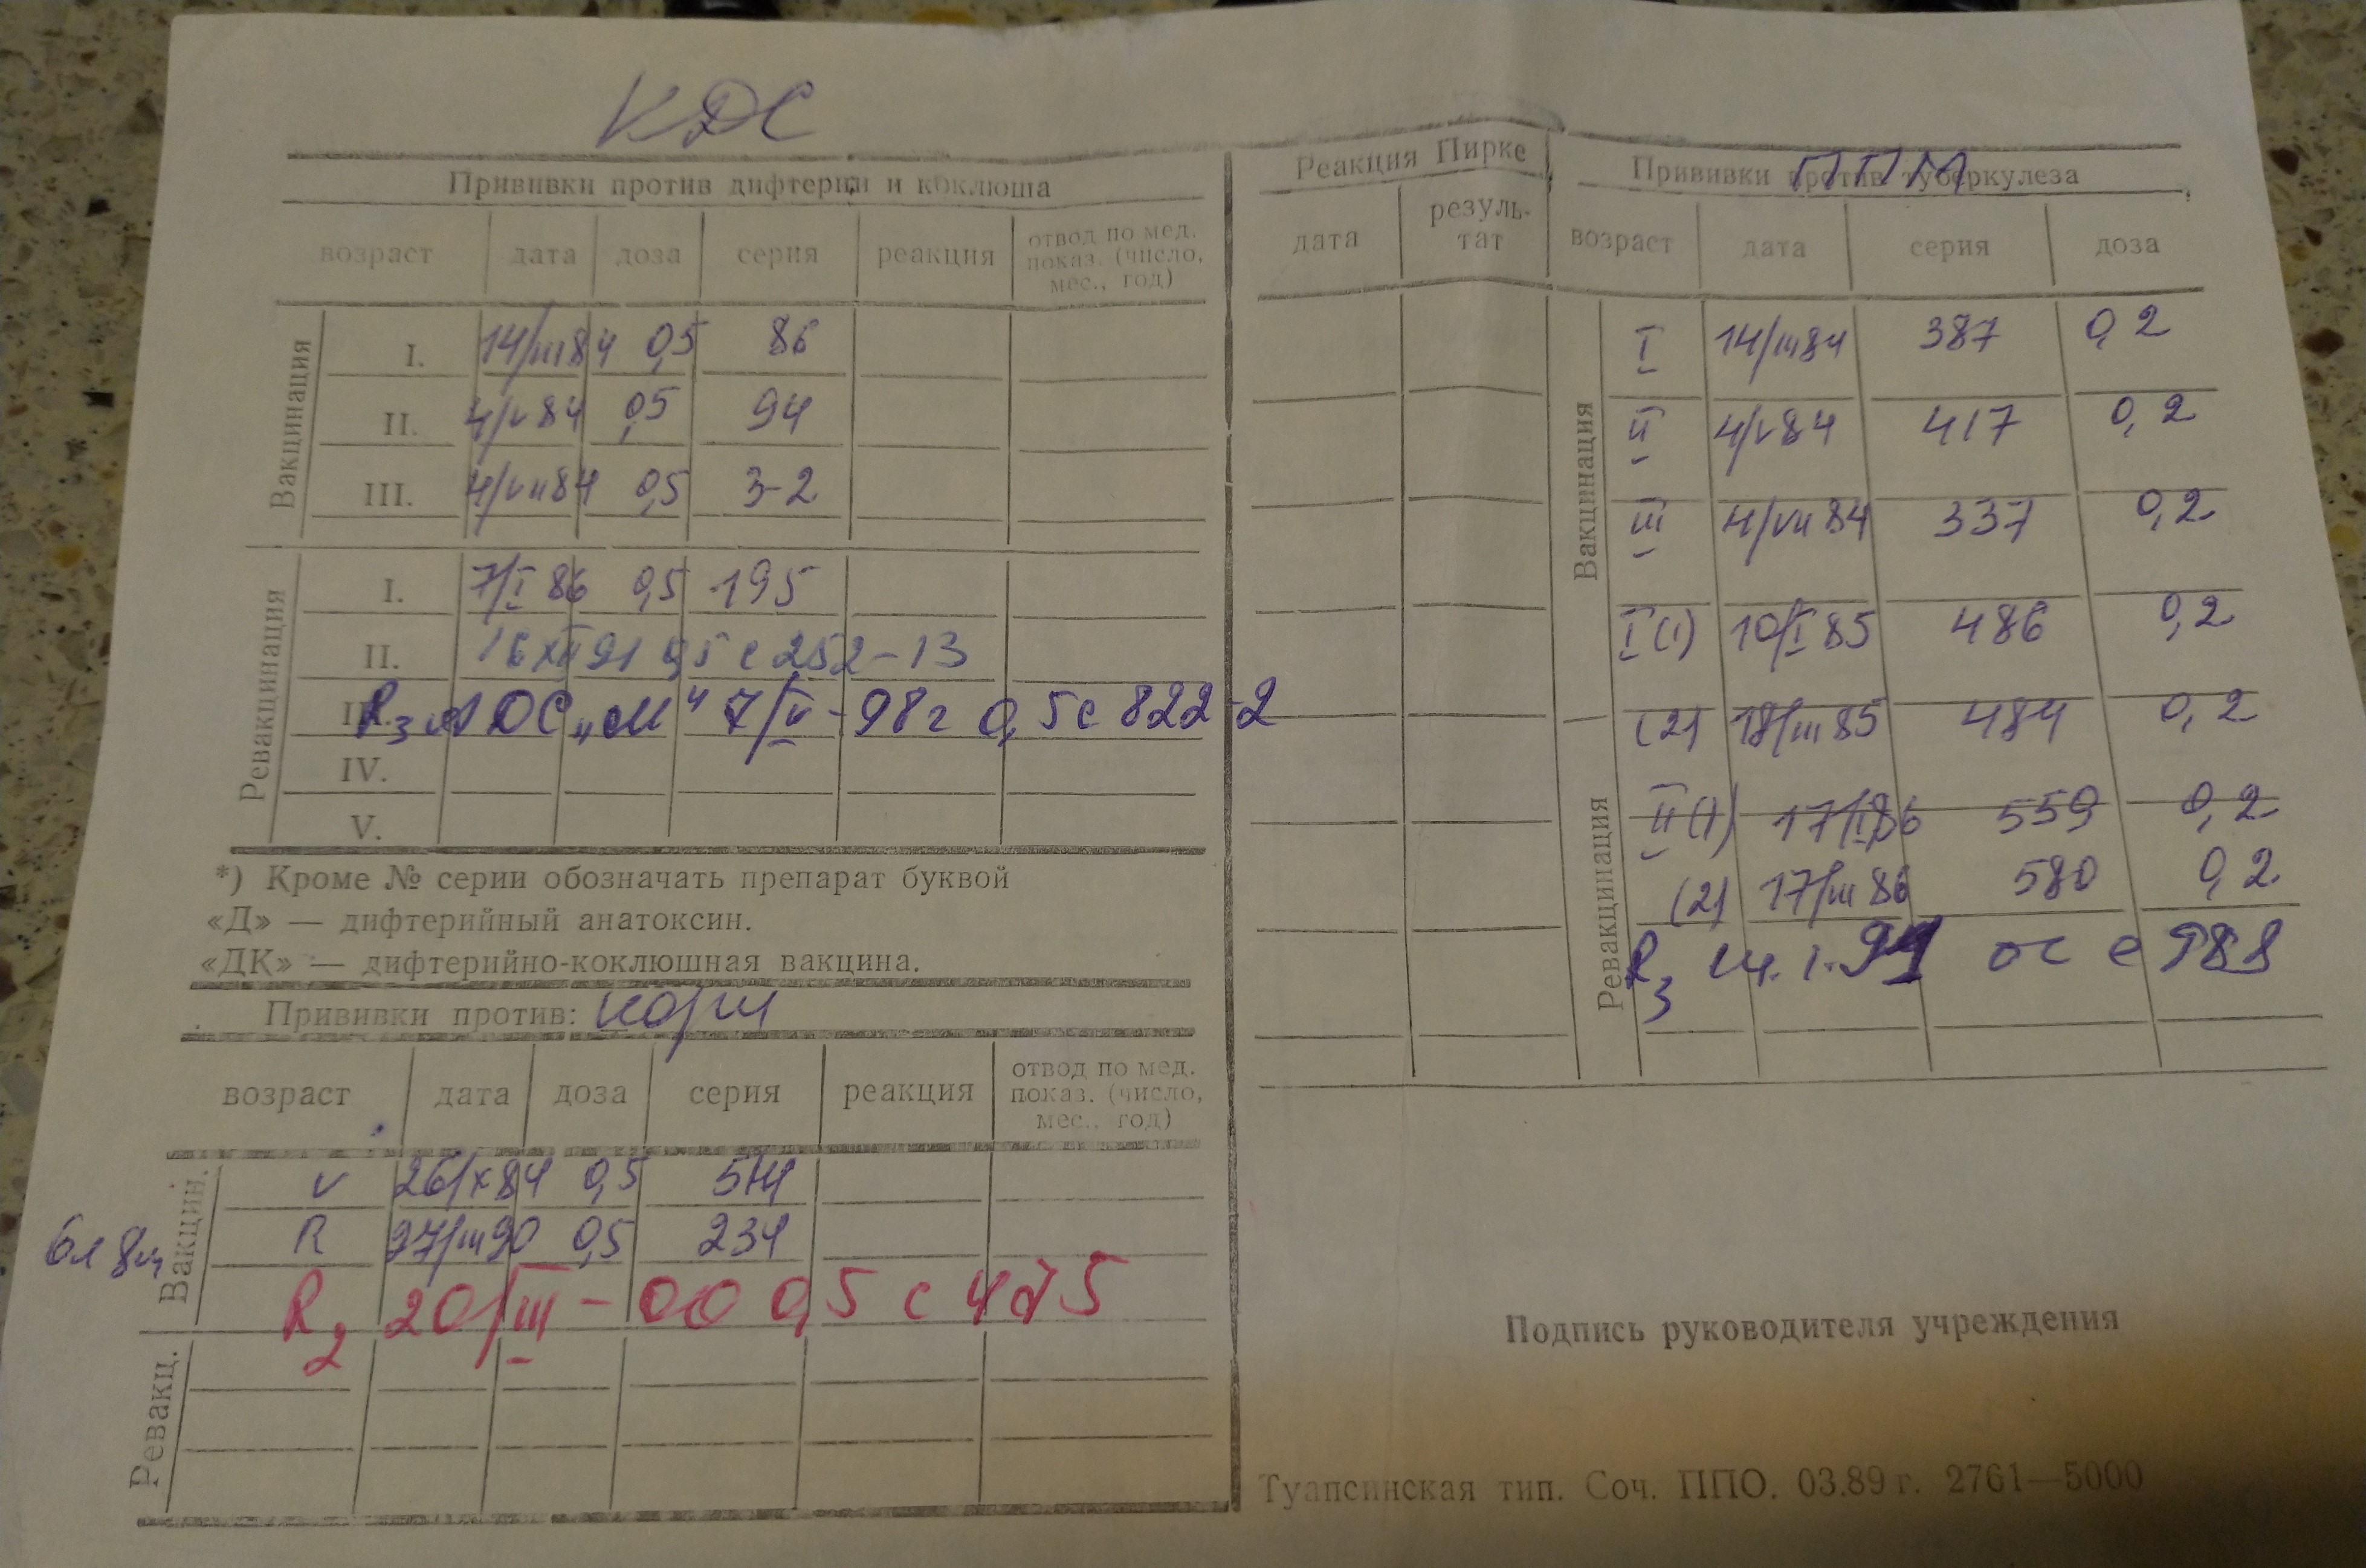 КДС
Прививки против дифтерии и коклюша
возраст дата доза серия реакция отвод по мед. показ. (число, мес., год)
Вакцинация
I. 14/III 84 0,5 86
II. 4/V 84 0,5 94
III. 4/VII 84 0,5 3-2
Ревакцинация
I. 7/I 86 0,5 195
II. 16 XII 91 0,5 с 252-13
III. R3 АДС „М" 7/II-98г 0,5 с 822-2
IV.
V.
*) Кроме № серии обозначать препарат буквой
«Д» — дифтерийный анатоксин.
«ДК» — дифтерийно-коклюшная вакцина.
Прививки против: кори
возраст дата доза серия реакция отвод по мед. показ. (число, мес., год)
Вакцин.
V 26/X 84 0,5
6л 8м R 27/III 90 0,5 234
R2 20/III-00 0,5 с
Ревакц.
Реакция Пирке
дата резуль-
тат
Прививки против туберкулеза
возраст дата серия доза
Вакцинация
I 14/III 84 387 0,2
II 4/V 84 417 0,2
III 4/VII 84 337 0,2
I (1) 10/I 85 486 0,2
(2) 18/III 85 484 0,2
Ревакцинация
II (1) 17/I 86 559 0,2
(2) 17/III 86 580 0,2
R3 с 988
Подпись руководителя учреждения
Туапсинская тип. Соч. ППО. 03.89 г. 2761—5000